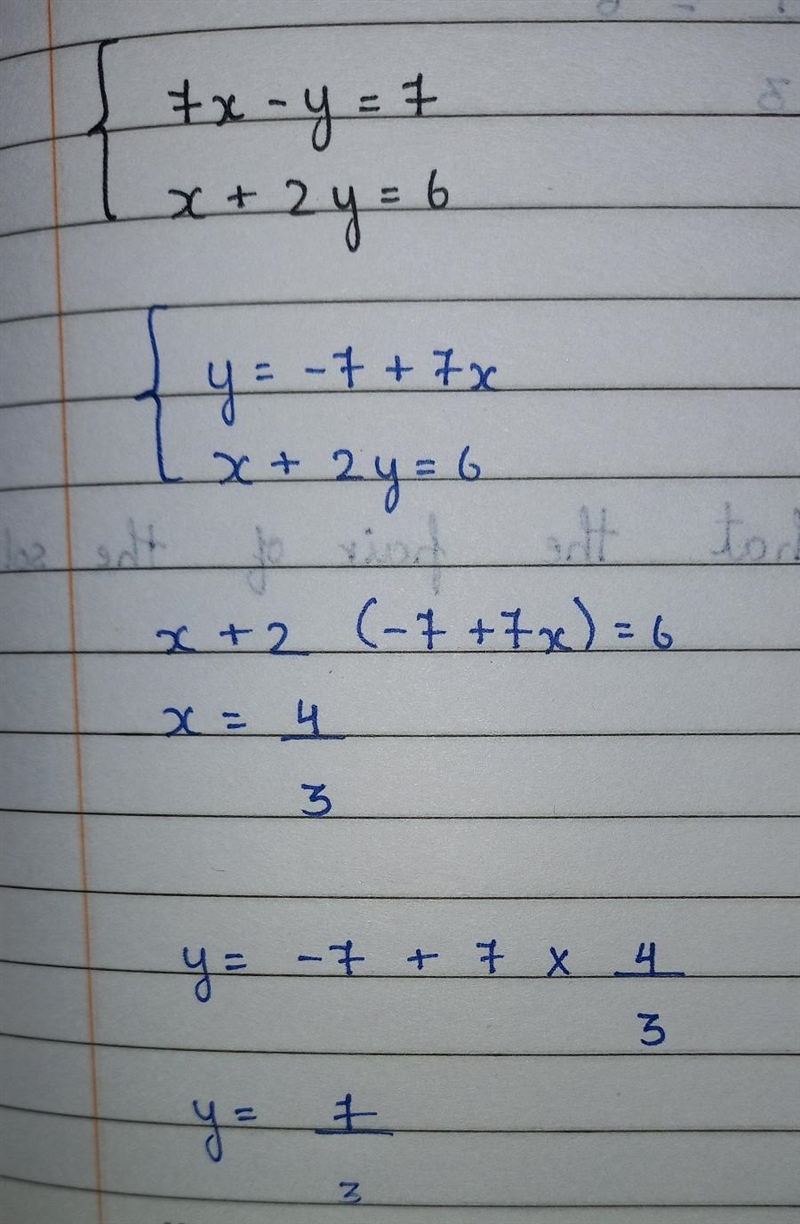 7x - y = 7
x + 2y = 6
y = -7 + 7x
x + 2y = 6
x + 2 (-7 + 7x) = 6
x = 4/3
y = -7 + 7 x 4/3
y = 7/3